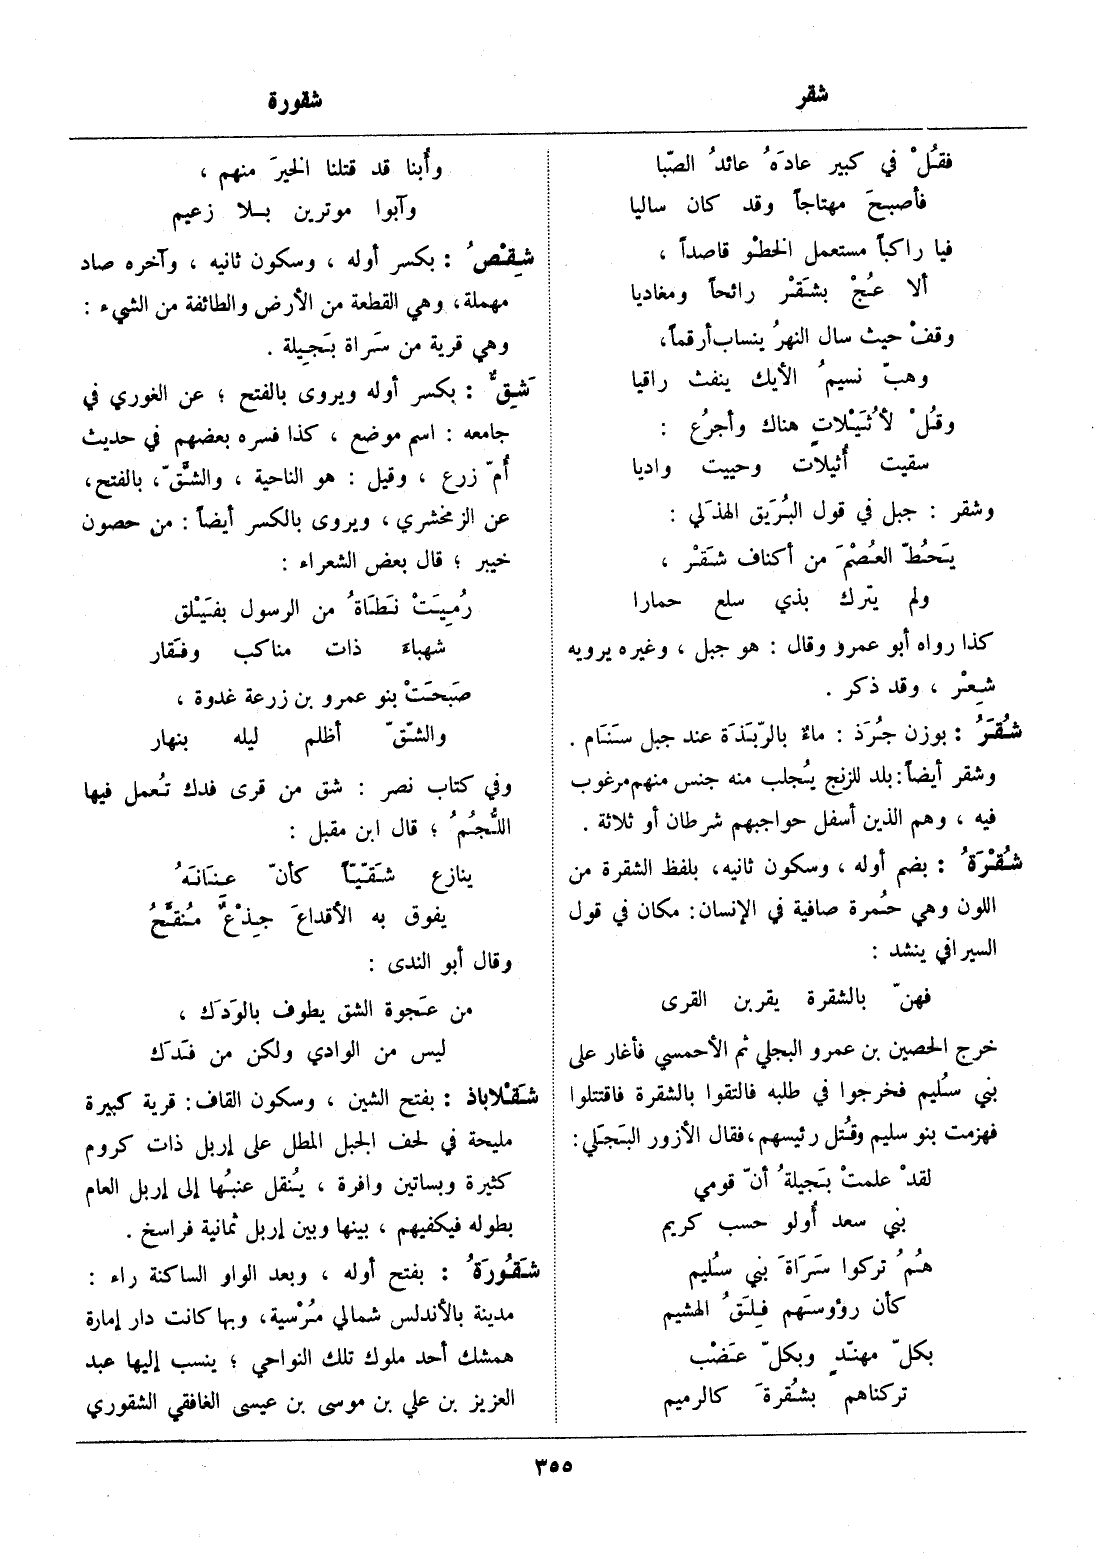 شقر
شقورة
فقُلْ في كبير عادَهُ عائدُ الصّبا
فأصبحَ مهتاجاً وقد كان ساليا
فيا راكباً مستعمل الخطْو قاصداً ،
ألا عُجْ بشَقْر رائحاً ومغاديا
وقفْ حيث سال النهرُ ينساب أرقماً،
وهبّ نسيمُ الأيك ينفث راقيا
وقُلْ لأُثَيْلاتٍ هناك وأجرُع :
سقيت أُثيلات وحييت واديا
وشقر : جبل في قول البُرَيق الهذَلي :
يَحُطّ العُصْمَ من أكناف شَقْر ،
ولم يترك بذي سلع حمارا
كذا رواه أبو عمرو وقال : هو جبل ، وغيره يرويه
شِعِرْ ، وقد ذكر .
شُقَرُ : بوزن جُرَذ : ماءٌ بالرّبَذَة عند جبل سَنَام .
وشقر أيضاً: بلد للزنج يُجلب منه جنس منهم مرغوب
فيه ، وهم الذين أسفل حواجبهم شرطان أو ثلاثة .
شُقْرَةُ : بضم أوله ، وسكون ثانيه، بلفظ الشقرة من
اللون وهي حُمرة صافية في الإنسان: مكان في قول
السيرافي ينشد :
فهنّ بالشقرة يقربن القرى
خرج الحصين بن عمرو البجلي ثم الأحمسي فأغار على
بني سُليم فخرجوا في طلبه فالتقوا بالشقرة فاقتتلوا
فهزمت بنو سليم وقُتل رئيسهم، فقال الأزور البَجَلي:
لقدْ علمتْ بَجيلةُ أنّ قومي
بني سعد أُولو حسب كريم
هُمُ تركوا سَرَاةَ بني سُليم
كأن رؤوسَهم فِلَقُ الهشيم
بكلّ مهنّدٍ وبكلّ عَضْب
تركناهم بشُقرةَ كالرميم
وأُبنا قد قتلنا الخيرَ منهم ،
وآبوا موترين بلا زعيم
شِقْصُ : بكسر أوله ، وسكون ثانيه ، وآخره صاد
مهملة، وهي القطعة من الأرض والطائفة من الشيء :
وهي قرية من سَراة بَجِيلة .
شِقٌّ : بكسر أوله ويروى بالفتح ؛ عن الغوري في
جامعه : اسم موضع ، كذا فسره بعضهم في حديث
أُمّ زرع ، وقيل : هو الناحية ، والشَّقّ، بالفتح،
عن الزمخشري ، ويروى بالكسر أيضاً : من حصون
خيبر ؛ قال بعض الشعراء :
رُمِيَتْ نَطَاةُ من الرسول بفَيْلق
شهباءَ ذات مناكب وفَقار
صَبحَتْ بنو عمرو بن زرعة غدوة ،
والشّقّ أظلم ليله بنهار
وفي كتاب نصر : شق من قرى فدك تُعمل فيها
اللُّجُمُ ؛ قال ابن مقبل :
ينازع شَقّيّاً كأنّ عِنَانَهُ
يفوق به الأقداعَ جِذْعٌ مُنَقَّحُ
وقال أبو الندى :
من عَجوة الشق يطوف بالوَدَك ،
ليس من الوادي ولكن من فَدَك
شَقْلاباذ : بفتح الشين ، وسكون القاف: قرية كبيرة
مليحة في لحف الجبل المطل على إربل ذات كروم
كثيرة وبساتين وافرة ، يُنقل عنبُها إلى إربل العام
بطوله فيكفيهم ، بينها وبين إربل ثمانية فراسخ .
شَقُورَةُ : بفتح أوله ، وبعد الواو الساكنة راء :
مدينة بالأندلس شمالي مُرْسية، وبها كانت دار إمارة
همشك أحد ملوك تلك النواحي ؛ ينسب إليها عبد
العزيز بن علي بن موسى بن عيسى الغافقي الشقوري
٣٥٥